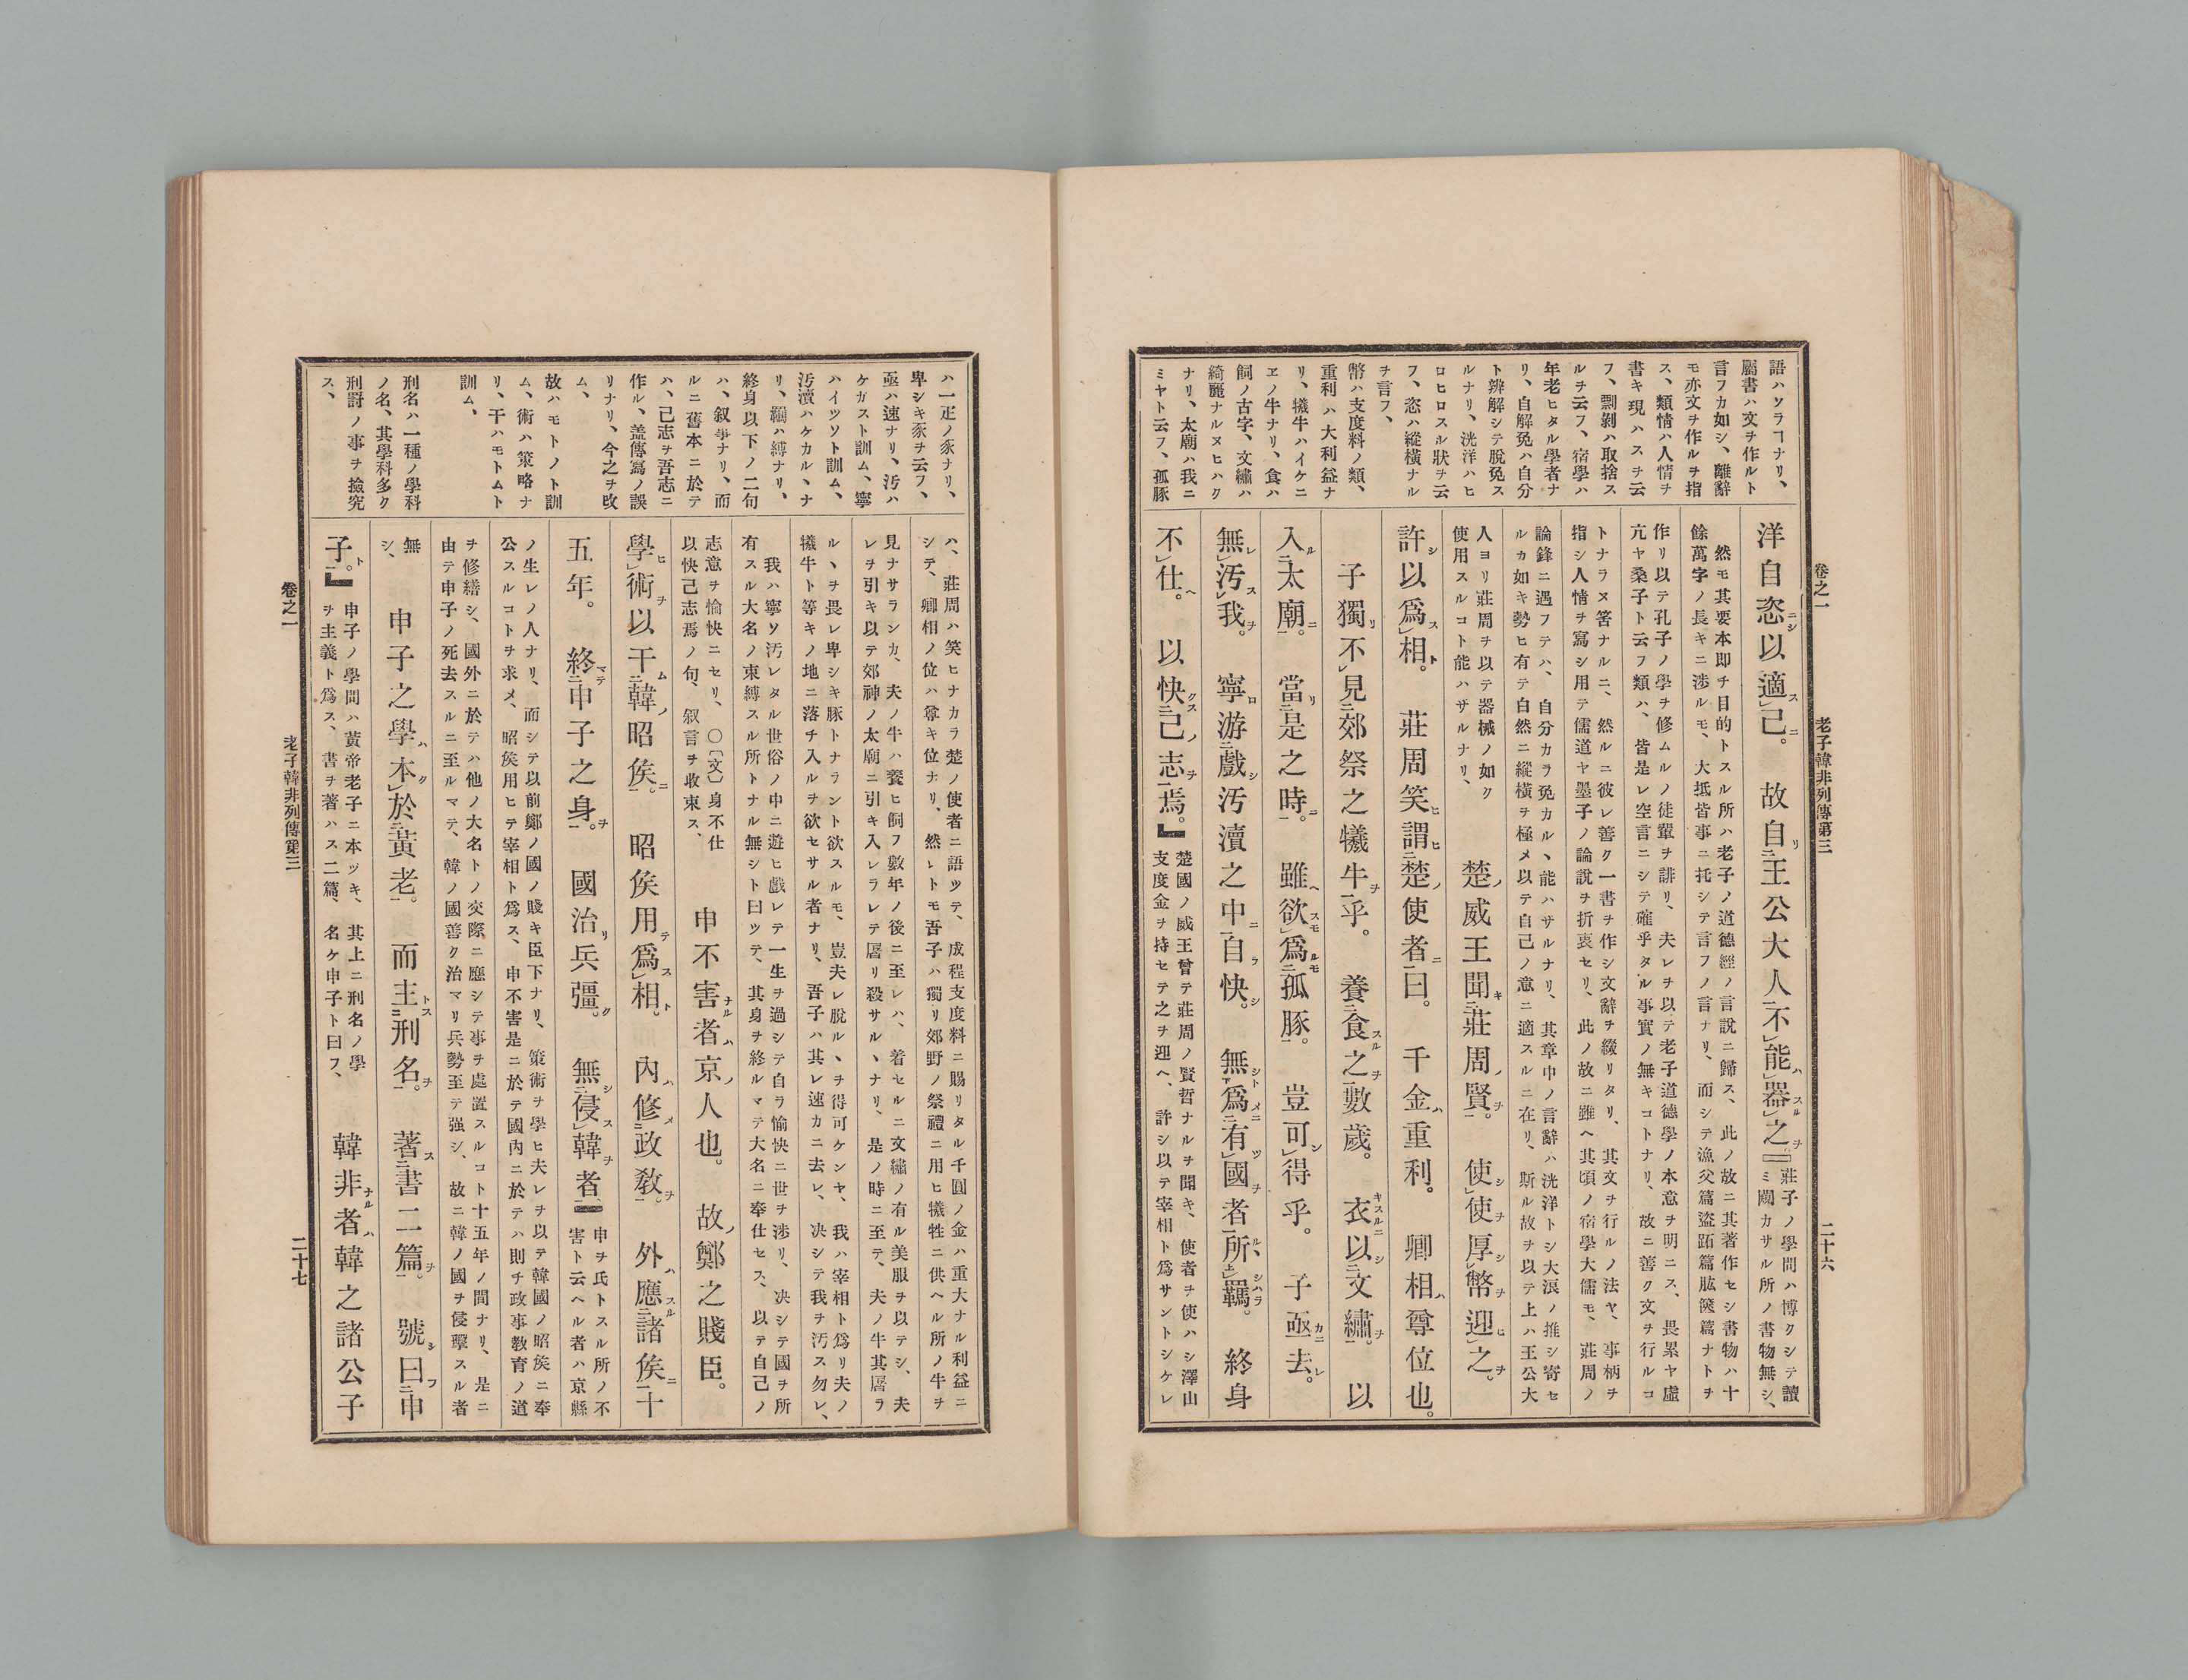 語ハソラヿナリ、
屬書ハ文ヲ作ルト
言フカ如シ、離辭
モ亦文ヲ作ルヲ指
ス、類情ハ人情ヲ
書キ現ハスヲ云
フ、剽剝ハ取捨ス
ルヲ云フ、宿學ハ
年老ヒタル學者ナ
リ、自解免ハ自分
ト辨解シテ脫免ス
ルナリ、洸洋ハヒ
ロヒロスル狀ヲ云
フ、恣ハ縱橫ナル
ヲ言フ、
幣ハ支度料ノ類、
重利ハ大利益ナ
リ、犧牛ハイケニ
エノ牛ナリ、食ハ
飼ノ古字、文繡ハ
綺麗ナルヌヒハク
ナリ、太廟ハ我ニ
ミヤト云フ、孤豚
卷之一 老子韓非列傳第三 二十六
洋自恣ニシ以適スレ己ニ。故自リ二王公大人一不レ能ハレ器スルレ之ヲ。』莊子ノ學問ハ博クシテ讀
ミ閱カサル所ノ書物無シ、
然モ其要本即チ目的トスル所ハ老子ノ道德經ノ言說ニ歸ス、此ノ故ニ其著作セシ書物ハ十
餘萬字ノ長キニ涉ルモ、大抵皆事ニ托シテ言フノ言ナリ、而シテ漁父篇盜跖篇胠篋篇ナトヲ
作リ以テ孔子ノ學ヲ修ムルノ徒輩ヲ誹リ、夫レヲ以テ老子道德學ノ本意ヲ明ニス、畏累ヤ虛
亢ヤ桑子ト云フ類ハ、皆是レ空言ニシテ確乎タル事實ノ無キコトナリ、故ニ善ク文ヲ行ルコ
トナラヌ筈ナルニ、然ルニ彼レ善ク一書ヲ作シ文辭ヲ綴リタリ、其文ヲ行ルノ法ヤ、事柄ヲ
指シ人情ヲ寫シ用テ儒道ヤ墨子ノ論說ヲ折衷セリ、此ノ故ニ雖ヘ其頃ノ宿學大儒モ、莊周ノ
論鋒ニ遇フテハ、自分カラ免カルヽ能ハサルナリ、其章中ノ言辭ハ洸洋トシ大浪ノ推シ寄セ
ルカ如キ勢ヒ有テ自然ニ縱橫ヲ極メ以テ自己ノ意ニ適スルニ在リ、斯ル故ヲ以テ上ハ王公大
人ヨリ莊周ヲ以テ器械ノ如ク
使用スルコト能ハサルナリ、
楚ノ威王聞キ二莊周ノ賢ヲ一。使シレ使ヲ厚シレ幣ヲ迎ヒレ之ヲ。
許シ以爲スレ相ト。莊周笑ヒ謂ヒ二楚ノ使者ニ一曰。千金ハ重利。卿相ハ尊位也。
子獨リ不レ見二郊祭之犧牛ヲ一乎。養二食スル之ヲ一數歲。衣キスルニ以シ二文繡ヲ一。以
入ル二太廟ニ一。當リ二是之時ニ一。雖ヘレ欲スモレ爲ルモ二孤豚一。豈可シレ得乎。子亟カニ去レ。
無レレ汚スレ我ヲ。寧ロ游二戲シ汚瀆之中ニ一自ラ快シ。無シト下爲メニ二有ツレ國ヲ者一所ルヽ上羈シハラ。終身
不レ仕ヘ。以快クス二己ノ志ヲ一焉。』楚國ノ威王曾テ莊周ノ賢哲ナルヲ聞キ、使者ヲ使ハシ澤山
支度金ヲ持セテ之ヲ迎ヘ、許シ以テ宰相ト爲サントシケレ
ハ一疋ノ豕ナリ、
卑シキ豕ヲ云フ、
亟ハ速ナリ、汚ハ
ケガスト訓ム、寧
ハイツソト訓ム、
汚瀆ハケカルヽナ
リ、羈ハ縛ナリ、
終身以下ノ二句
ハ、叙事ナリ、而
ルニ舊本ニ於テ
ハ、己志ヲ吾志ニ
作ル、蓋傳寫ノ誤
リナリ、今之ヲ改
ム、
故ハモトノト訓
ム、術ハ策略ナ
リ、干ハモトムト
訓ム、
刑名ハ一種ノ學科
ノ名、其學科多ク
刑罸ノ事ヲ撿究
ス、
ハ、莊周ハ笑ヒナカラ楚ノ使者ニ語ツテ、成程支度料ニ賜リタル千圓ノ金ハ重大ナル利益ニ
シテ、卿相ノ位ハ尊キ位ナリ、然レトモ吾子ハ獨リ郊野ノ祭禮ニ用ヒ犧牲ニ供ヘル所ノ牛ヲ
見ナサランカ、夫ノ牛ハ養ヒ飼フ數年ノ後ニ至レハ、着セルニ文繡ノ有ル美服ヲ以テシ、夫
レヲ引キ以テ郊神ノ太廟ニ引キ入レラレテ屠リ殺サルヽナリ、是ノ時ニ至テ、夫ノ牛其屠ラ
ルヽヲ畏レ卑シキ豚トナラント欲スルモ、豈夫レ脫ルヽヲ得可ケンヤ、我ハ宰相ト爲リ夫ノ
犧牛ト等キノ地ニ落チ入ルヲ欲セサル者ナリ、吾子ハ其レ速カニ去レ、决シテ我ヲ汚ス勿レ、
我ハ寧ソ汚レタル世俗ノ中ニ遊ヒ戲レテ一生ヲ過シテ自ラ愉快ニ世ヲ涉リ、决シテ國ヲ所
有スル大名ノ束縛スル所トナル無シト曰ツテ、其身ヲ終ルマテ大名ニ奉仕セス、以テ自己ノ
志意ヲ愉快ニセリ、〇〔文〕身不仕
以快己志焉ノ句、叙言ヲ收束ス、
申不害ナル者ハ京ノ人也。故ノ鄭之賤臣。
學ヒレ術ヲ以干ム二韓ノ昭矦ニ一。昭矦用テ爲スレ相ト。內ハ修メ二政敎ヲ一。外ハ應スル二諸矦ニ一十
五年。終マテ二申子之身ヲ一。國治リ兵彊ク。無シ二侵スレ韓ヲ者一』申ヲ氏トスル所ノ不
害ト云ヘル者ハ京縣
ノ生レノ人ナリ、而シテ以前鄭ノ國ノ賤キ臣下ナリ、策術ヲ學ヒ夫レヲ以テ韓國ノ昭矦ニ奉
公スルコトヲ求メ、昭矦用ヒテ宰相ト爲ス、申不害是ニ於テ國內ニ於テハ則チ政事敎育ノ道
ヲ修繕シ、國外ニ於テハ他ノ大名トノ交際ニ應シテ事ヲ處置スルコト十五年ノ間ナリ、是ニ
由テ申子ノ死去スルニ至ルマテ、韓ノ國善ク治マリ兵勢至テ强シ、故ニ韓ノ國ヲ侵擊スル者
無
シ、
申子之學ハ本クレ於二黃老一。而主トス二刑名ヲ一。著ス二書二篇ヲ一。號シ曰フ二申
子ト一。』申子ノ學問ハ黃帝老子ニ本ツキ、其上ニ刑名ノ學
ヲ主義ト爲ス、書ヲ著ハス二篇、名ケ申子ト曰フ、
韓非ナル者ハ韓之諸公子
卷之一 老子韓非列傳第三 二十七